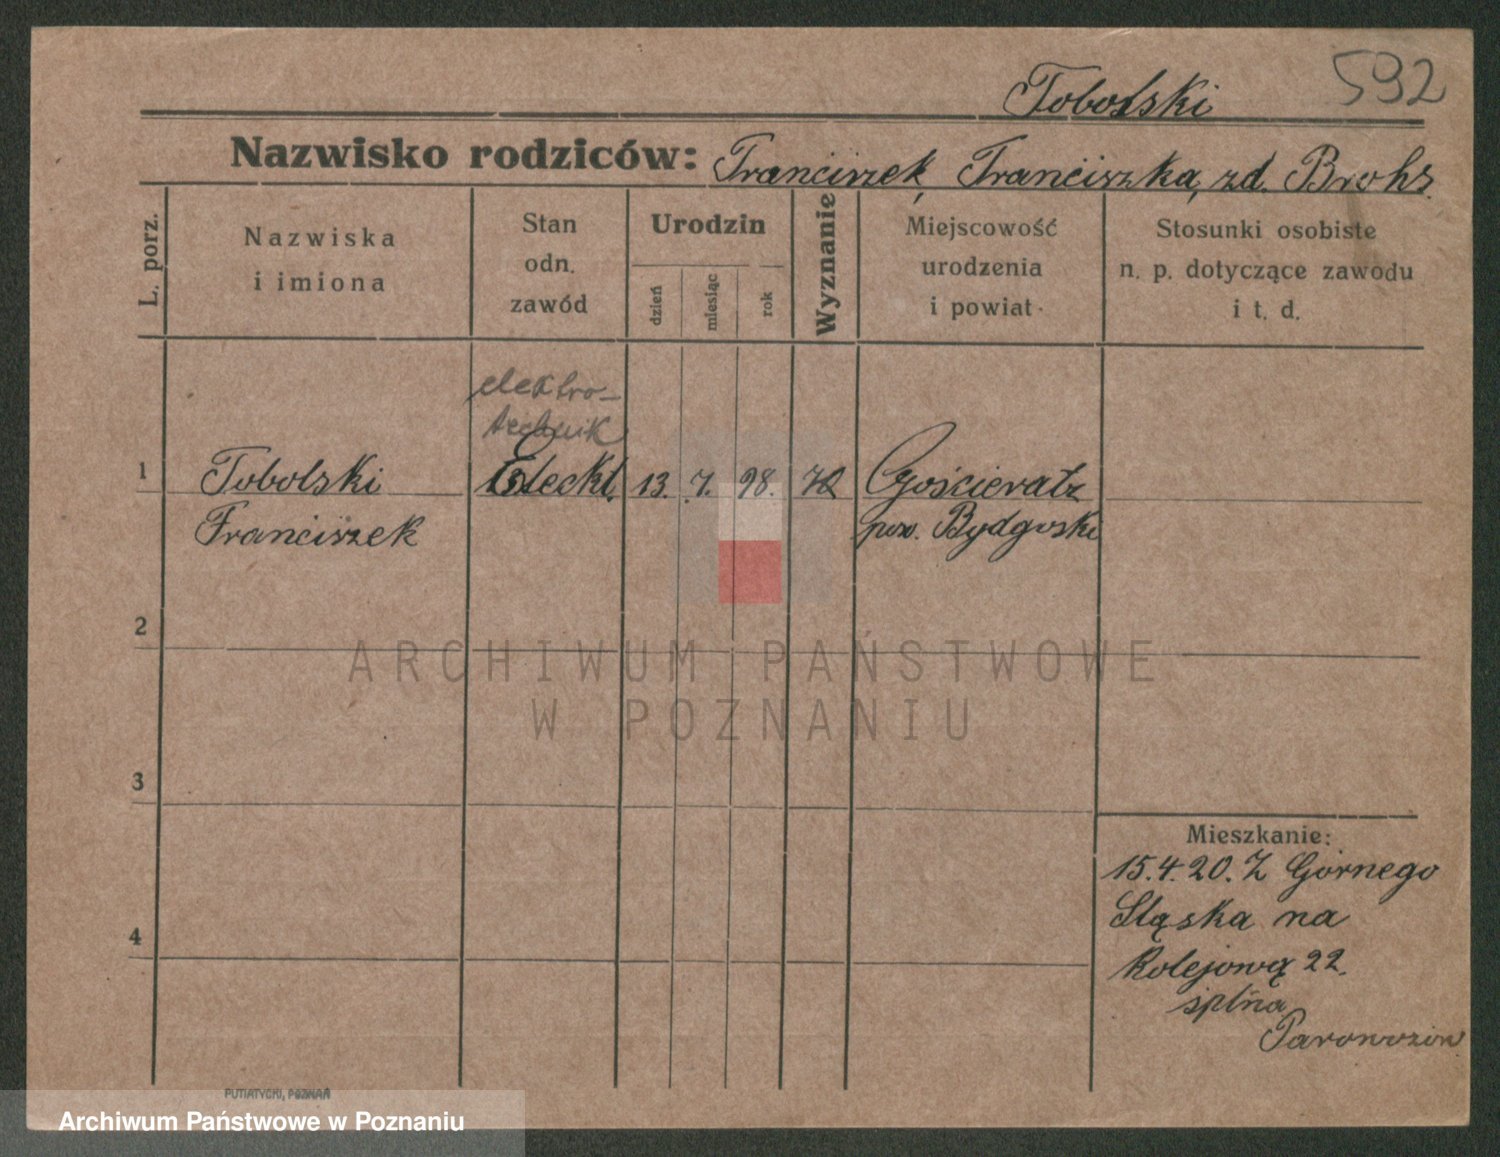 592
Tobolski
Nazwisko rodziców: Franciszek, Franciszka, zd. Brohs.
L. porz.
Nazwiska
i imiona
Stan
odn.
zawód
Urodzin
dzień
miesiąc
rok
Wyznanie
Miejscowość
urodzenia
i powiat
Stosunki osobiste
n. p. dotyczące zawodu
i t. d.
elektro-
technik
1 Tobolski Eleckt. 13. 7. 98. Gościeradz
Franciszek pow. Bydgoski
2
3
4
Mieszkanie:
15.4.20. Z Górnego
Śląska na
Kolejową 22.
PUTIATYCKI, POZNAŃ
ARCHIWUM PAŃSTWOWE
W POZNANIU
Archiwum Państwowe w Poznaniu